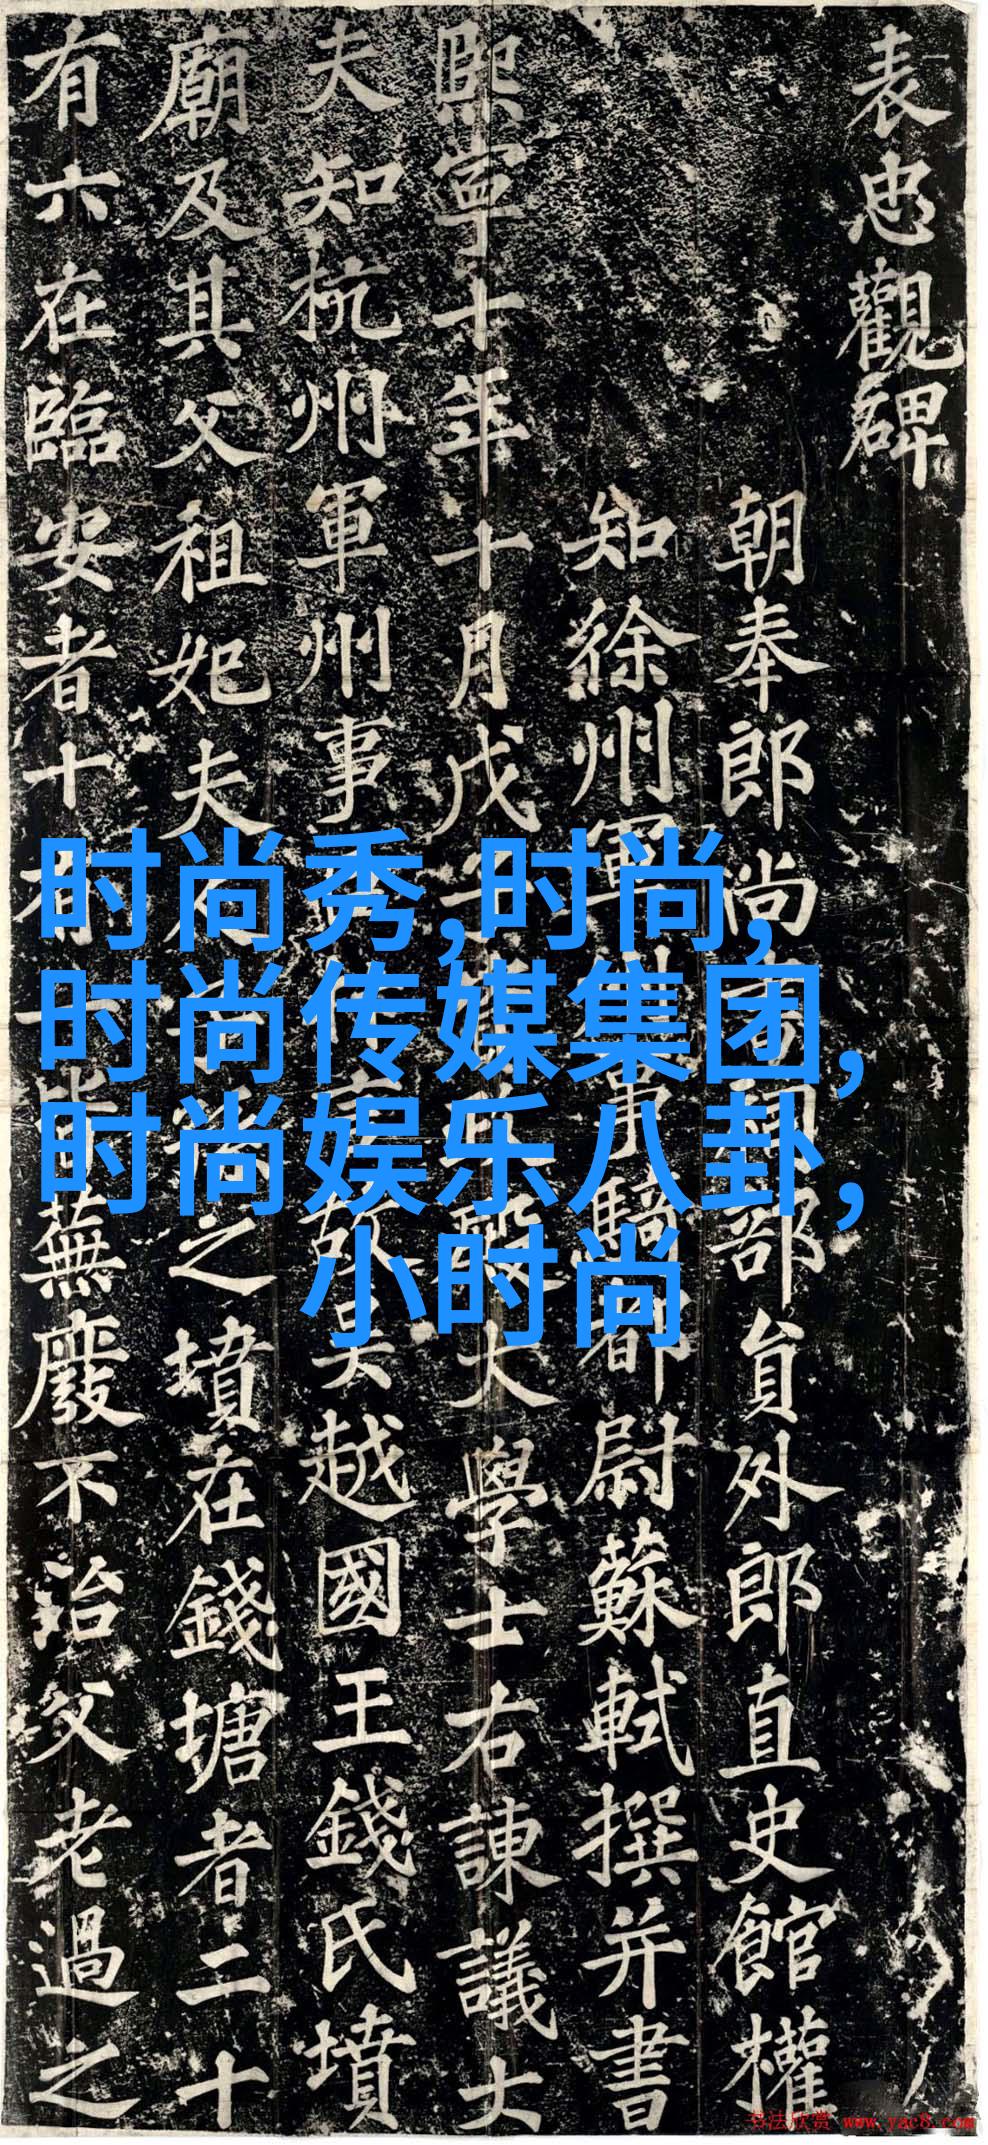 表忠觀碑
朝奉郎尚部員外郎直史館權
知徐州軍事騎都尉蘇軾撰并書
熙寧十年十月戊殿大學士右諫議大
夫知杭州軍州事故吳越國王錢氏墳
廟及其父祖妃夫之墳在錢塘者二十
有六在臨安者十蕪廢不治父老過之
时尚秀,时尚,
时尚传媒集团,
时尚娱乐八卦,
小时尚
书法欣赏 www.yac8.com